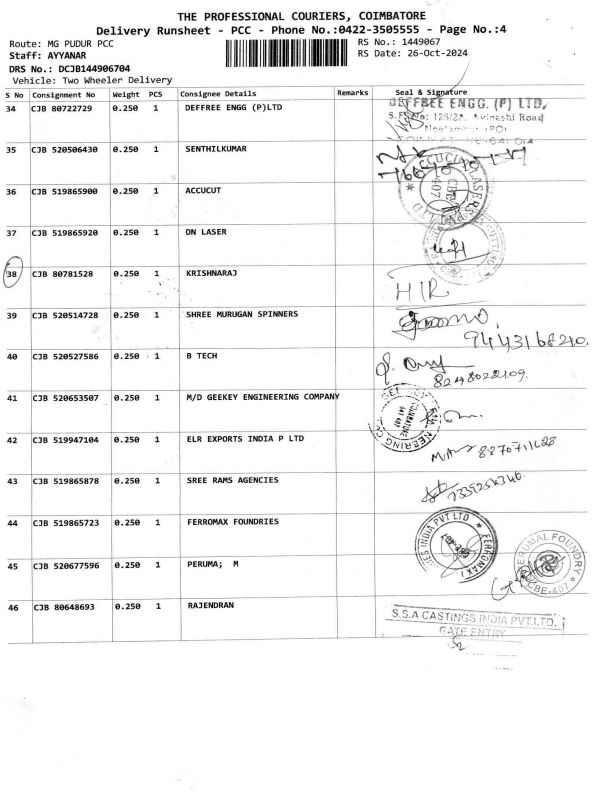 THE PROFESSIONAL COURIERS, COIMBATORE
Delivery Runsheet - PCC - Phone No.:0422-3505555 - Page No.:4
Route: MG PUDUR PCC RS No.: 1449067
Staff: AYYANAR RS Date: 26-Oct-2024
DRS No.: DCJB144906704
Vehicle: Two Wheeler Delivery
S No Consignment No Weight PCS Consignee Details Remarks Seal & Signature
34 CJB 80722729 0.250 1 DEFFREE ENGG (P)LTD DEFFREE ENGG. (P) LTD,
Avinashi Road
35 CJB 520506430 0.250 1 SENTHILKUMAR
36 CJB 519865900 0.250 1 ACCUCUT
37 CJB 519865920 0.250 1 DN LASER
38 CJB 80781528 0.250 1 KRISHNARAJ H/R
39 CJB 520514728 0.250 1 SHREE MURUGAN SPINNERS
9443168210.
40 CJB 520527586 0.250 1 B TECH
8248022109.
41 CJB 520653507 0.250 1 M/D GEEKEY ENGINEERING COMPANY
42 CJB 519947104 0.250 1 ELR EXPORTS INDIA P LTD
43 CJB 519865878 0.250 1 SREE RAMS AGENCIES
44 CJB 519865723 0.250 1 FERROMAX FOUNDRIES
45 CJB 520677596 0.250 1 PERUMA; M
46 CJB 80648693 0.250 1 RAJENDRAN S.S.A CASTINGS INDIA PVT.LTD.
GATE ENTRY